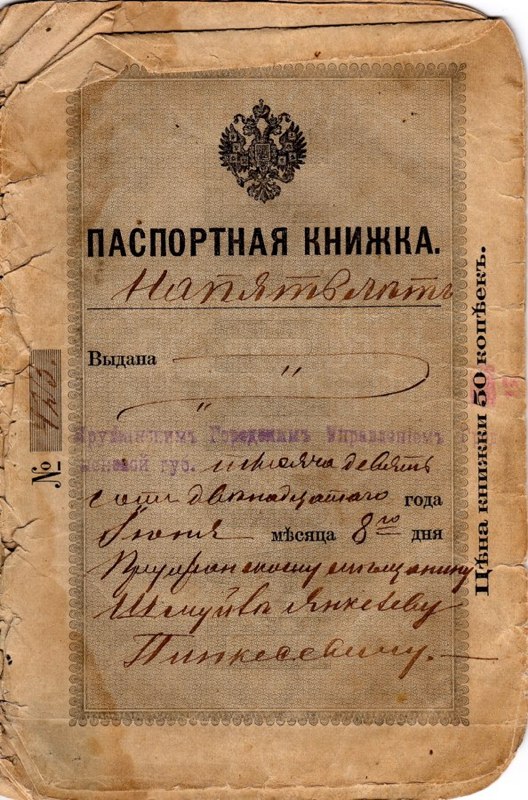 ПАСПОРТНАЯ КНИЖКА.
На пять лѣтъ
Выдана
Пружанскимъ Городскимъ Управленіемъ
губ. тысяча девять
сотъ двѣнадцатаго года
Іюня мѣсяца 8го дня
Пружанскому мѣщанину
Шмуйлѣ Янкелеву
№
Цѣна книжки 50 копѣекъ.